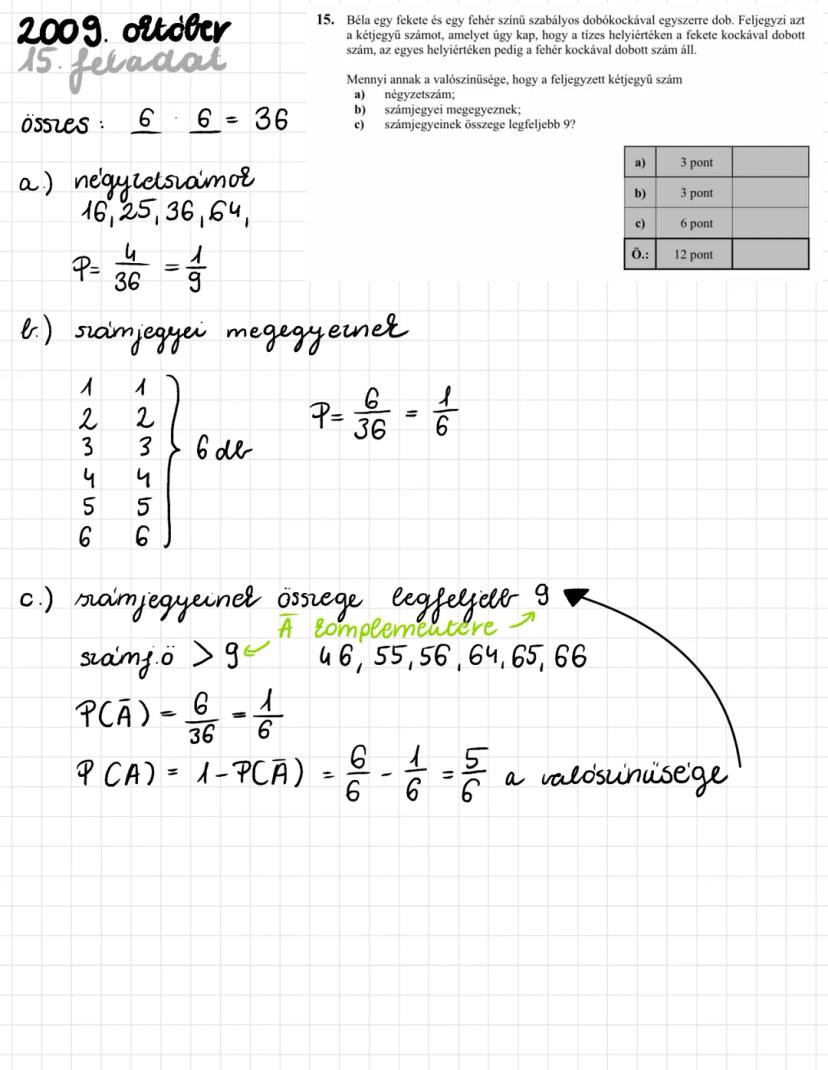 2009. október
15. feladat
15. Béla egy fekete és egy fehér színű szabályos dobókockával egyszerre dob. Feljegyzi azt
a kétjegyű számot, amelyet úgy kap, hogy a tízes helyiértéken a fekete kockával dobott
szám, az egyes helyiértéken pedig a fehér kockával dobott szám áll.
Mennyi annak a valószínűsége, hogy a feljegyzett kétjegyű szám
a) négyzetszám;
b) számjegyei megegyeznek;
c) számjegyeinek összege legfeljebb 9?
a) 3 pont
b) 3 pont
c) 6 pont
Ö.: 12 pont
összes: 6 · 6 = 36
a.) négyzetszámok
16, 25, 36, 64,
P= 4/36 = 1/9
b.) számjegyei megegyeznek
1 1
2 2
3 3
4 4
5 5
6 6
6 db
P= 6/36 = 1/6
c.) számjegyeinek összege legfeljebb 9
Ā komplementere
számj.ö > 9 46, 55, 56, 64, 65, 66
P(Ā) = 6/36 = 1/6
P(A) = 1-P(Ā) = 6/6 - 1/6 = 5/6 a valószínűsége